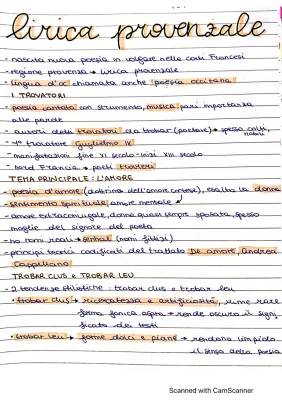 lirica provenzale
- nascita nuova poesia in volgare nelle corti Francesi
- regione provenza → lirica provenzale
- lingua d'oc chiamata anche poesia occitana
I TROVATORI
- poesia cantata con strumento, musica pari importanza
alle parole
- autori detti trovatori da trobar (poetare) → spesso colti, nobili
- 1° trovatore Guglielmo IX
- manifestazioni fine XI secolo - inizi XIII secolo
- nord Francia → poeti trovieri
TEMA PRINCIPALE: L'AMORE
- poesia d'amore (dottrina dell'amore cortese), esalta la donna
- sentimento spirituale, amore mentale
- amore extraconiugale, donna quasi sempre sposata, spesso
moglie del signore del poeta
- no nomi reali → senhal (nomi fittizi)
- principi teorici codificati del trattato De amore, Andrea
Cappellano
TROBAR CLUS e TROBAR LEU
- 2 tendenze stilistiche: trobar clus e trobar leu
• trobar clus → ricercatezza e artificiosità, rime rare
forma fonica aspra → rende oscuro il signi
ficato dei testi
• trobar leu → forme dolci e piane → rendono limpido
il senso della poesia
Scanned with CamScanner